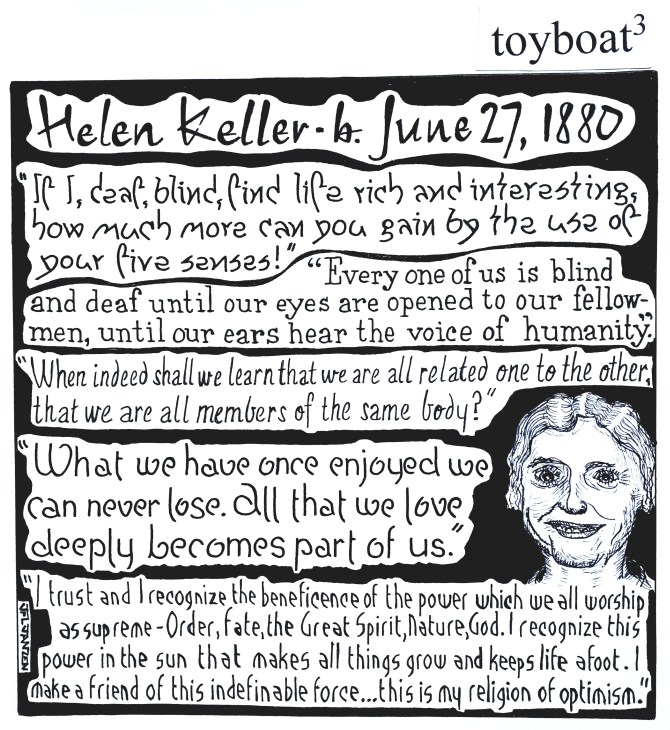 toyboat³
Helen Keller - b. June 27, 1880
"If I, deaf, blind, find life rich and interesting,
how much more can you gain by the use of
your five senses!" "Every one of us is blind
and deaf until our eyes are opened to our fellow-
men, until our ears hear the voice of humanity."
"When indeed shall we learn that we are all related one to the other,
that we are all members of the same body?"
"What we have once enjoyed we
can never lose. All that we love
deeply becomes part of us."
"I trust and I recognize the beneficence of the power which we all worship
as supreme - Order, Fate, the Great Spirit, Nature, God. I recognize this
power in the sun that makes all things grow and keeps life afoot. I
make a friend of this indefinable force...this is my religion of optimism."